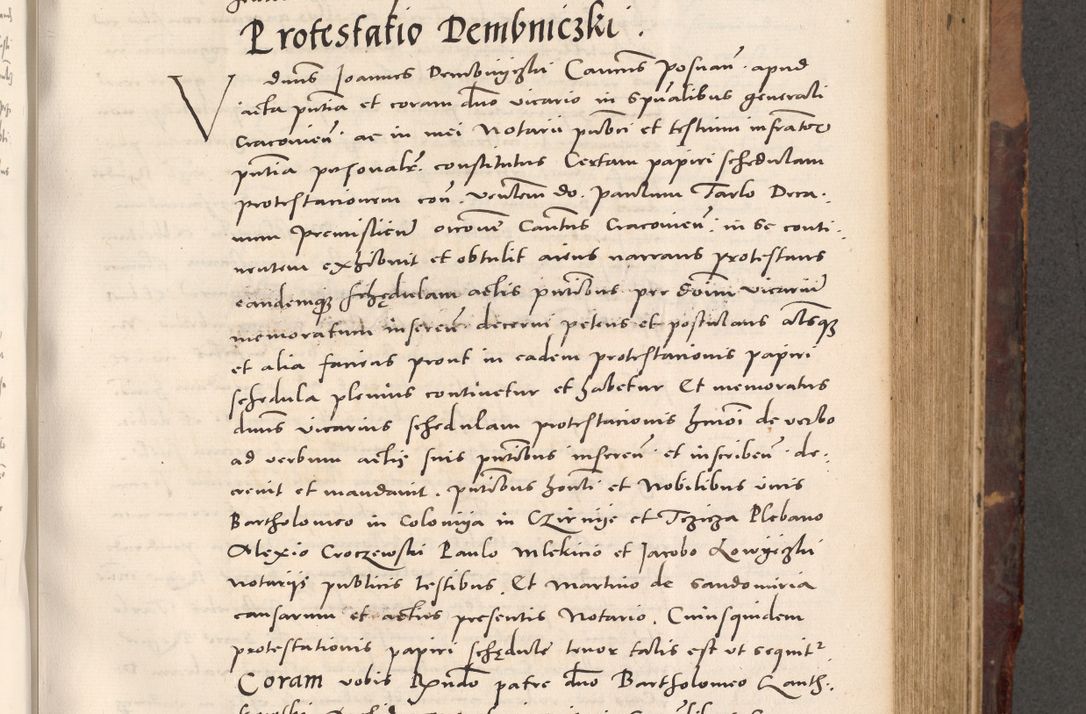 Protestatio Dembniczki.
V duns Joannes Dembnyczki Canons Posnan. apud
acta pntia et coram dno vicario in spualibus generali
Cracovien. ac in mei Notarii publici et testium infrator
pntia personalr. constitutus Certam papiri schedulam
protestacionem con. venlem do. Paulum Tarlo Deca.
num Premislien oiconum Cantus Cracovien. in se conti.
nentem exhibuit et obtulit aiens narrans protestans
eandemque schedulam actis pntibus per dominum vicarium
memoratum inseren decerni petens et postulans aliasque
et alia faciens prout in eadem protestacionis papiri
schedula plenius continetur et habetur Et memoratus
duns vicarius schedulam protestacionis hmoi de verbo
ad verbum actis suis pntibus inseren et inscriben. de.
crevit et mandavit. pntibus honli et Nobilibus viris
Bartholomeo in Coloniia in Plebano
Alexio Croczewski Paulo Mlekino et Jacobo Lowyczki
notariis publicis testibus. Et Martino de Sandomiria
causarum et actus presentis Notario. Cuiusquidem
protestationis papiri schedule tenor talis est ut sequitr
Coram vobis Rxndo patre dno Bartholomeo Ganth.